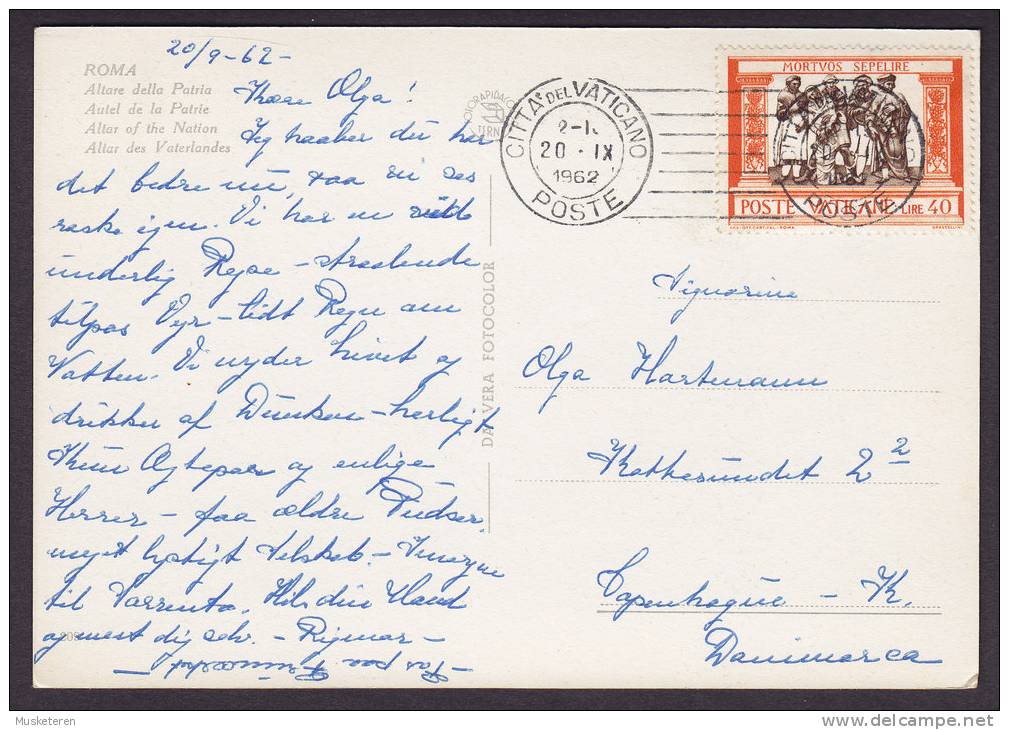 20/9-62-
ROMA
Altare della Patria
Autel de la Patrie
Altar of the Nation
Altar des Vaterlandes
Kære Olga!
Jeg haaber du har
det bedre nu, saa vi ses
raske igen. Vi har en
underlig Rejse - straalende
tilpas Vejr - lidt Regn om
Natten. Vi nyder Livet og
drikker af Dunken - herligt
Kun Ægtepar og enlige
Herrer - faa ældre Pudser.
meget lystigt Selskab - Imorgen
til Sorrento. Hils din Mand
og mest dig selv. - Rigmor -
DA VERA FOTOCOLOR
CITTA' DEL VATICANO
20 · IX
1962
POSTE
MORTVOS SEPELIRE
POSTE VATICANE LIRE 40
Signorina
Olga Hartmann
Kattesundet 2 2
Copenhague - K.
Danimarca
Musketeren
delcampe.net